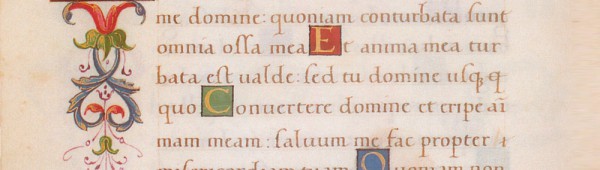 me domine: quoniam conturbata ſunt
omnia oſſa mea Et anima mea tur
bata eſt ualde: ſed tu domine uſqꝫ q̄
quo Conuertere domine et eripe aī
mam meam: ſaluum me fac propter
miſericordiam tuam Quoniam non